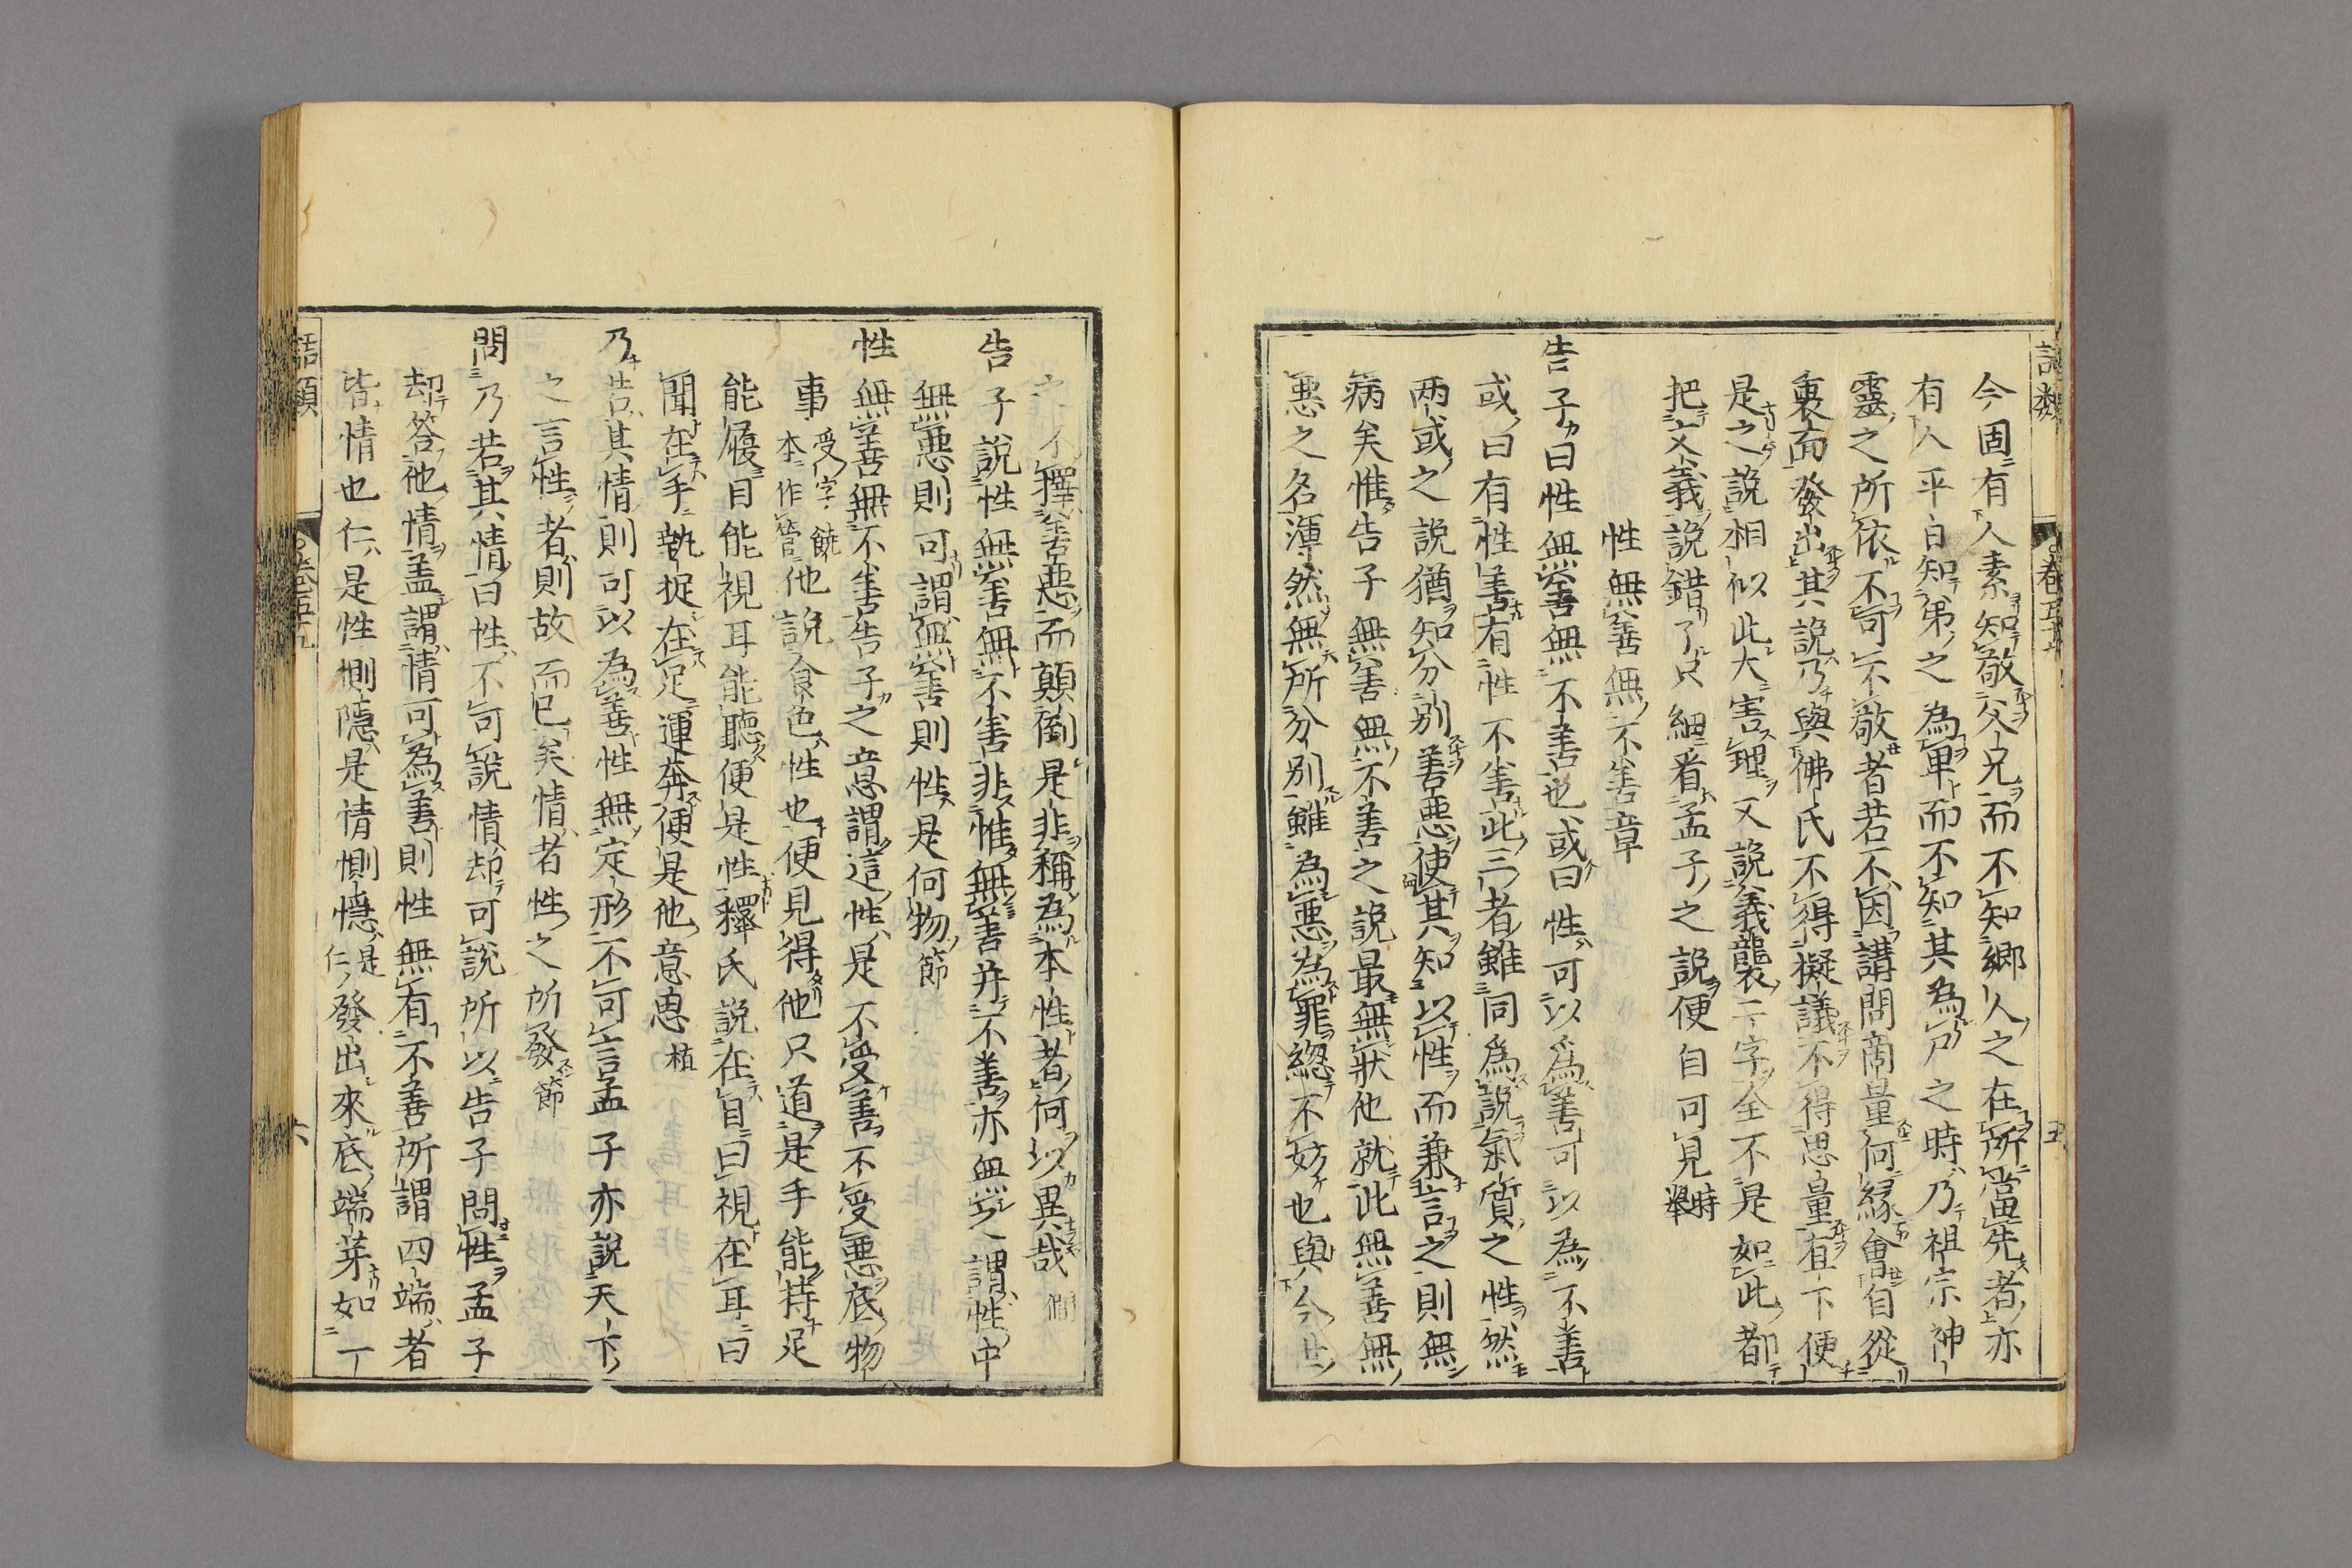 語類
卷五十九
五
今固有人素知敬父兄而不知鄉人之在所當先者亦
有人平白知弟之為卑而不知其為尸之時乃祖宗神
靈之所依不可不敬者若不因講問商量何縁會自從
裏面發出其説乃與佛氏不得擬議不得思量直下便
是之説相似此大害理又説義襲二字全不是如此都
把文義説錯了只細看孟子之説便自可見時舉
性無善無不善章
告子曰性無善無不善也或曰性可以為善可以為不善
或曰有性善有性不善此三者雖同為説氣質之性然
两或之説猶知分别善惡使其知以性而兼言之則無
病矣惟告子無善無不善之説最無狀他就此無善無
惡之名渾然無所分别雖為惡為罪緫不妨也與今世
之不擇善惡而顛倒是非稱為本性者何以異哉僩
告子説性無善無不善非惟無善并不善亦無之謂性中
無惡則可謂無善則性是何物節
性無善無不善告子之意謂這性是不受善不受惡底物
事受字饒本作管他説食色性也便見得他只道是手能持足
能履目能視耳能聽便是性釋氏説在目曰視在耳曰
聞在手執捉在足運奔便是他意思植
乃告其情則可以為善性無定形不可言孟子亦説天下
之言性者則故而已矣情者性之所發節
問乃若其情曰性不可説情却可説所以告子問性孟子
却答他情盖謂情可為善則性無有不善所謂四端者
皆情也仁是性惻隱是情惻隱是仁發出來底端芽如一
語類
卷五十九
六